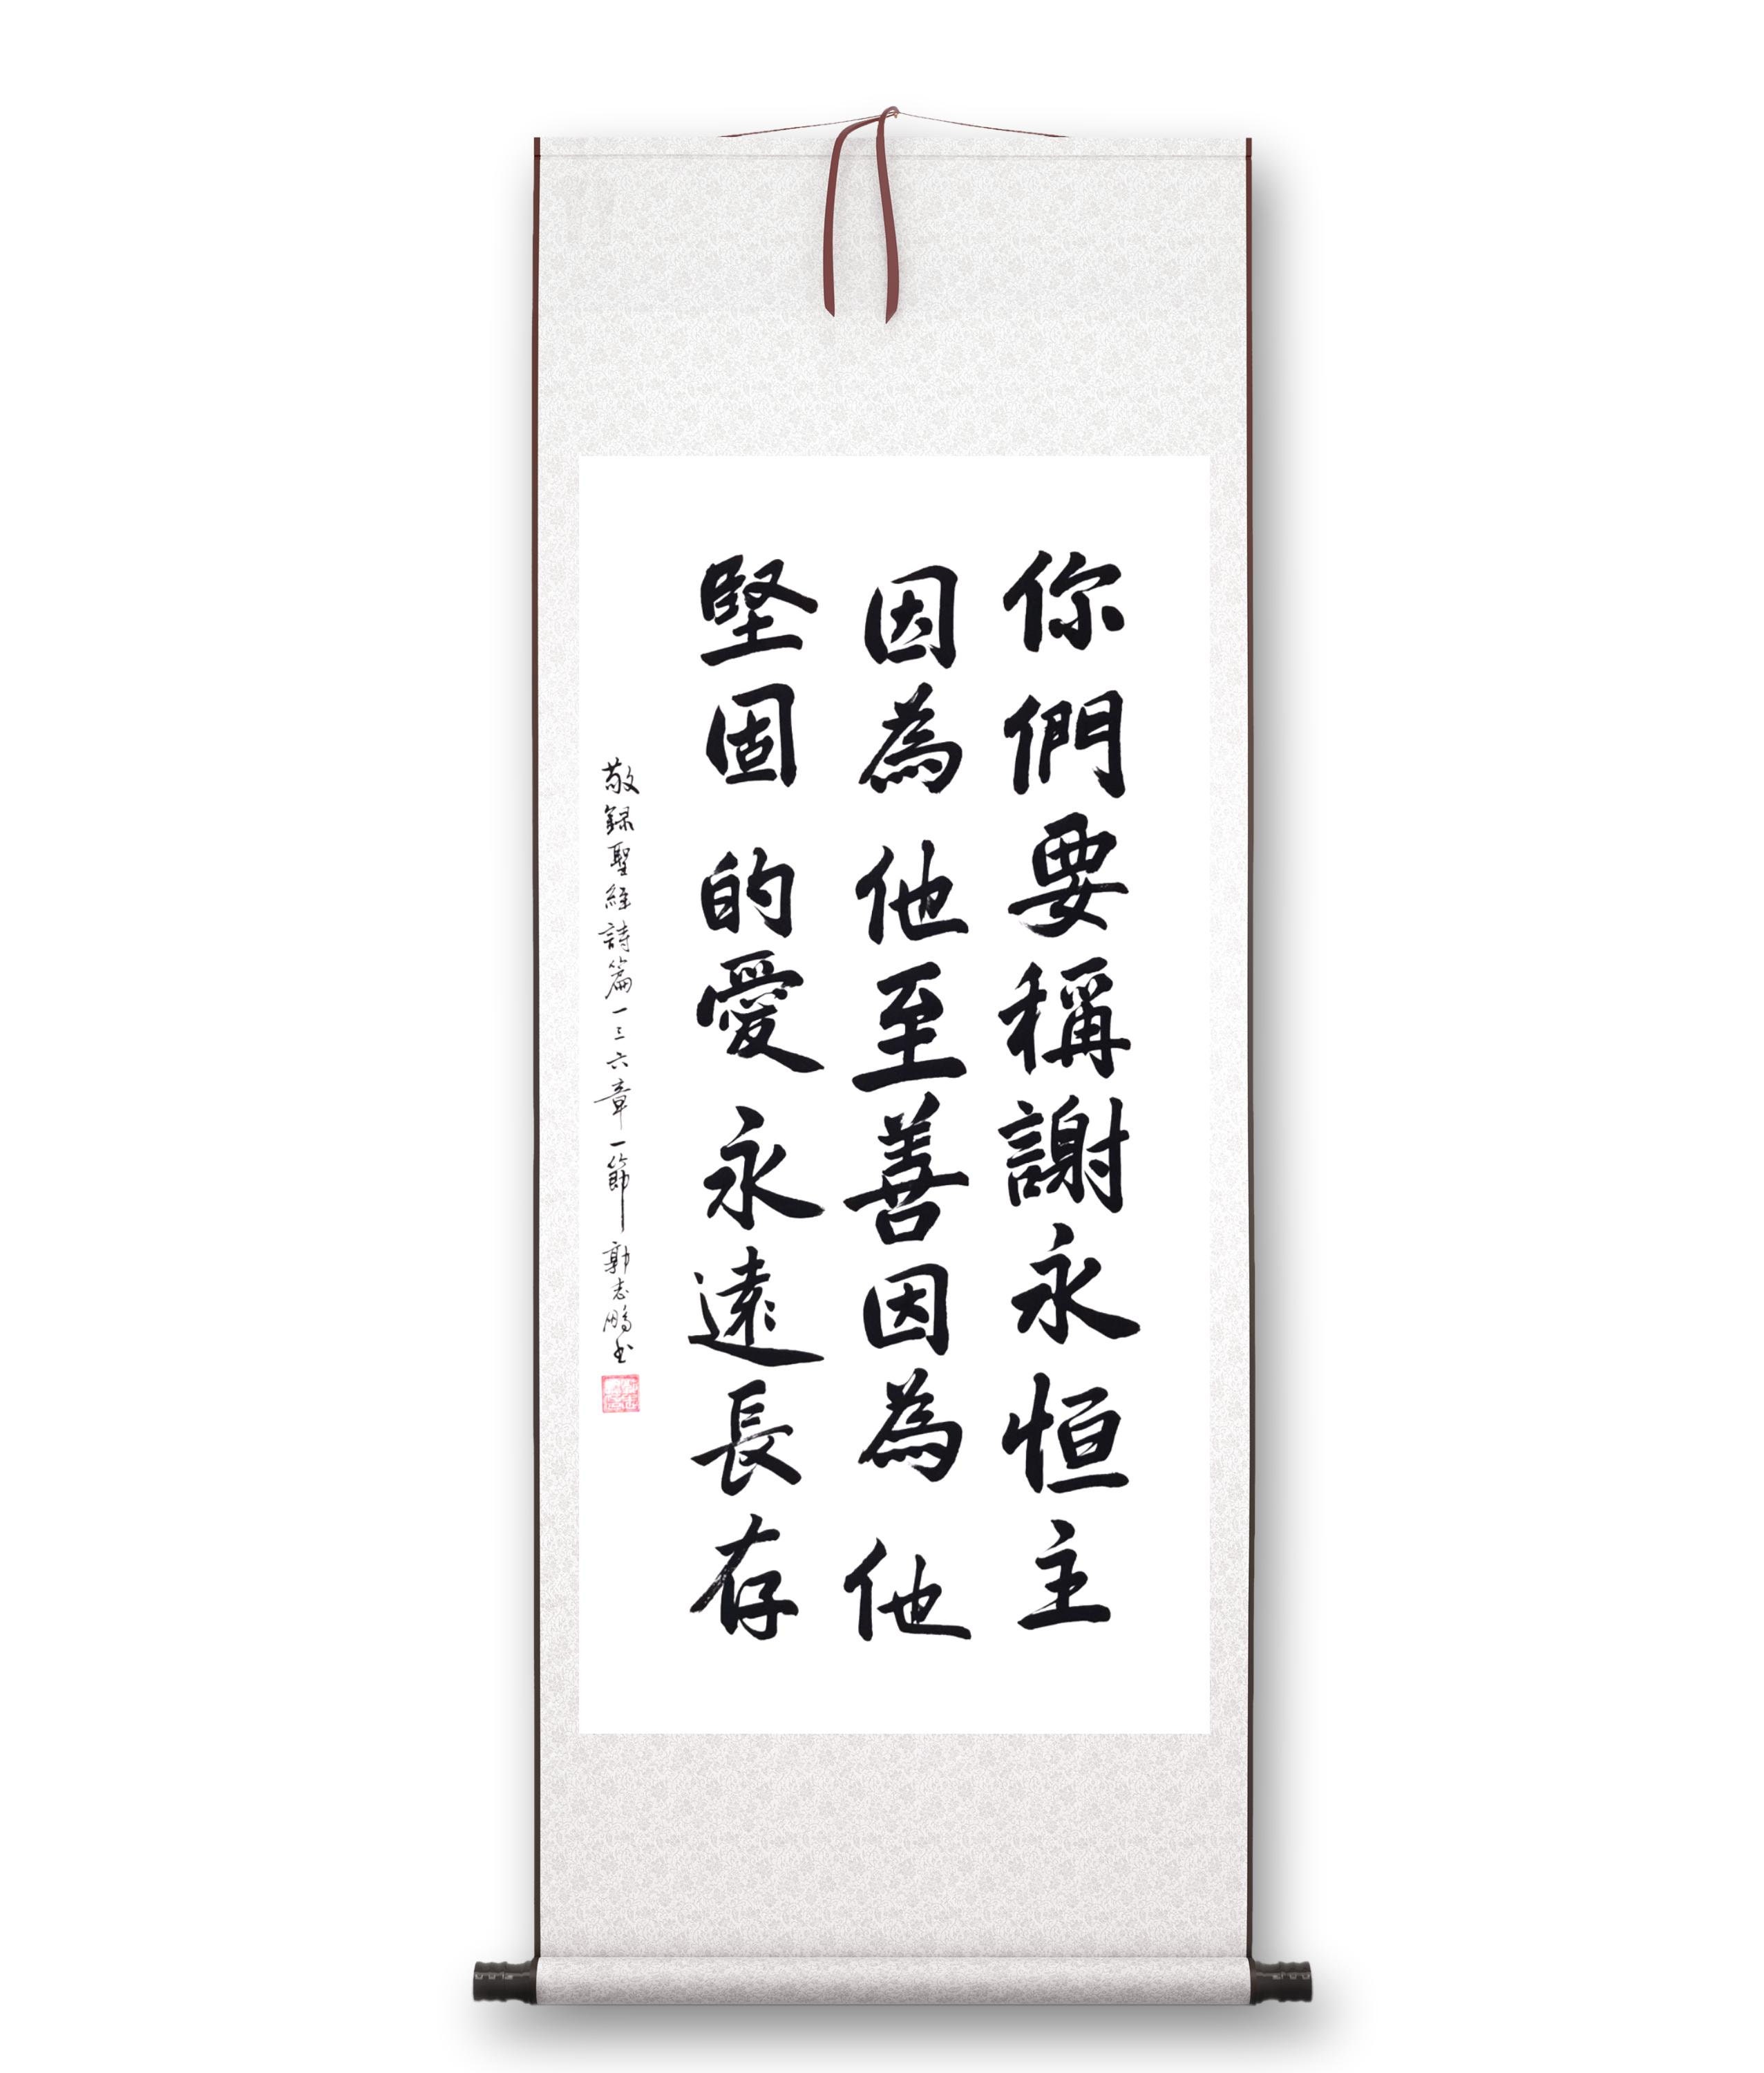 你們要稱謝永恒主
因為他至善因為他
堅固的愛永遠長存
敬録聖經詩篇一三六章一節 郭志鵬书